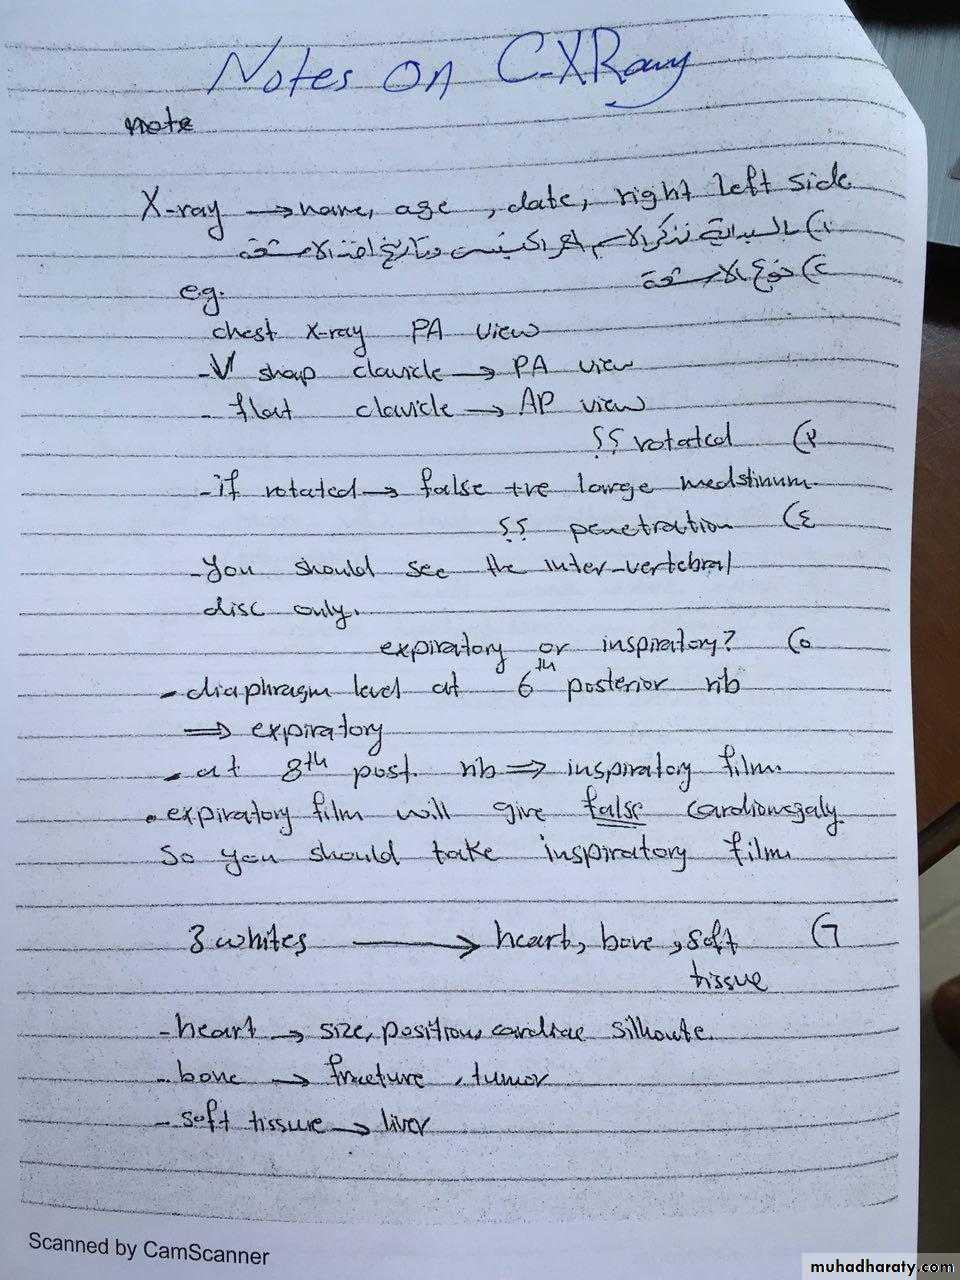 Notes On C-XRay
note
X-ray → name, age, date, right left side
١) بالبداية نذكر الاسم العمر الجنس وتاريخ اخذ الاشعة
٢) نوع الاشعة
eg.
chest x-ray PA view
- V shap clavicle → PA view
- flat clavicle → AP view
٣) rotated ؟؟
- if rotated → false +ve large medstinum.
٤) penetration ؟؟
- You should see the inter-vertebral
disc only.
٥) expiratory or inspiratory?
- diaphragm level at 6th posterior rib
⇒ expiratory
- at 8th post. rib ⇒ inspiratory film.
• expiratory film will give false cardiomegaly.
So you should take inspiratory film.
٦) 3 whites → heart, bone, soft
tissue
- heart → size, position, cardiac silhoute.
- bone → fructure, tumor
- soft tissure → liver
Scanned by CamScanner
muhadharaty.com